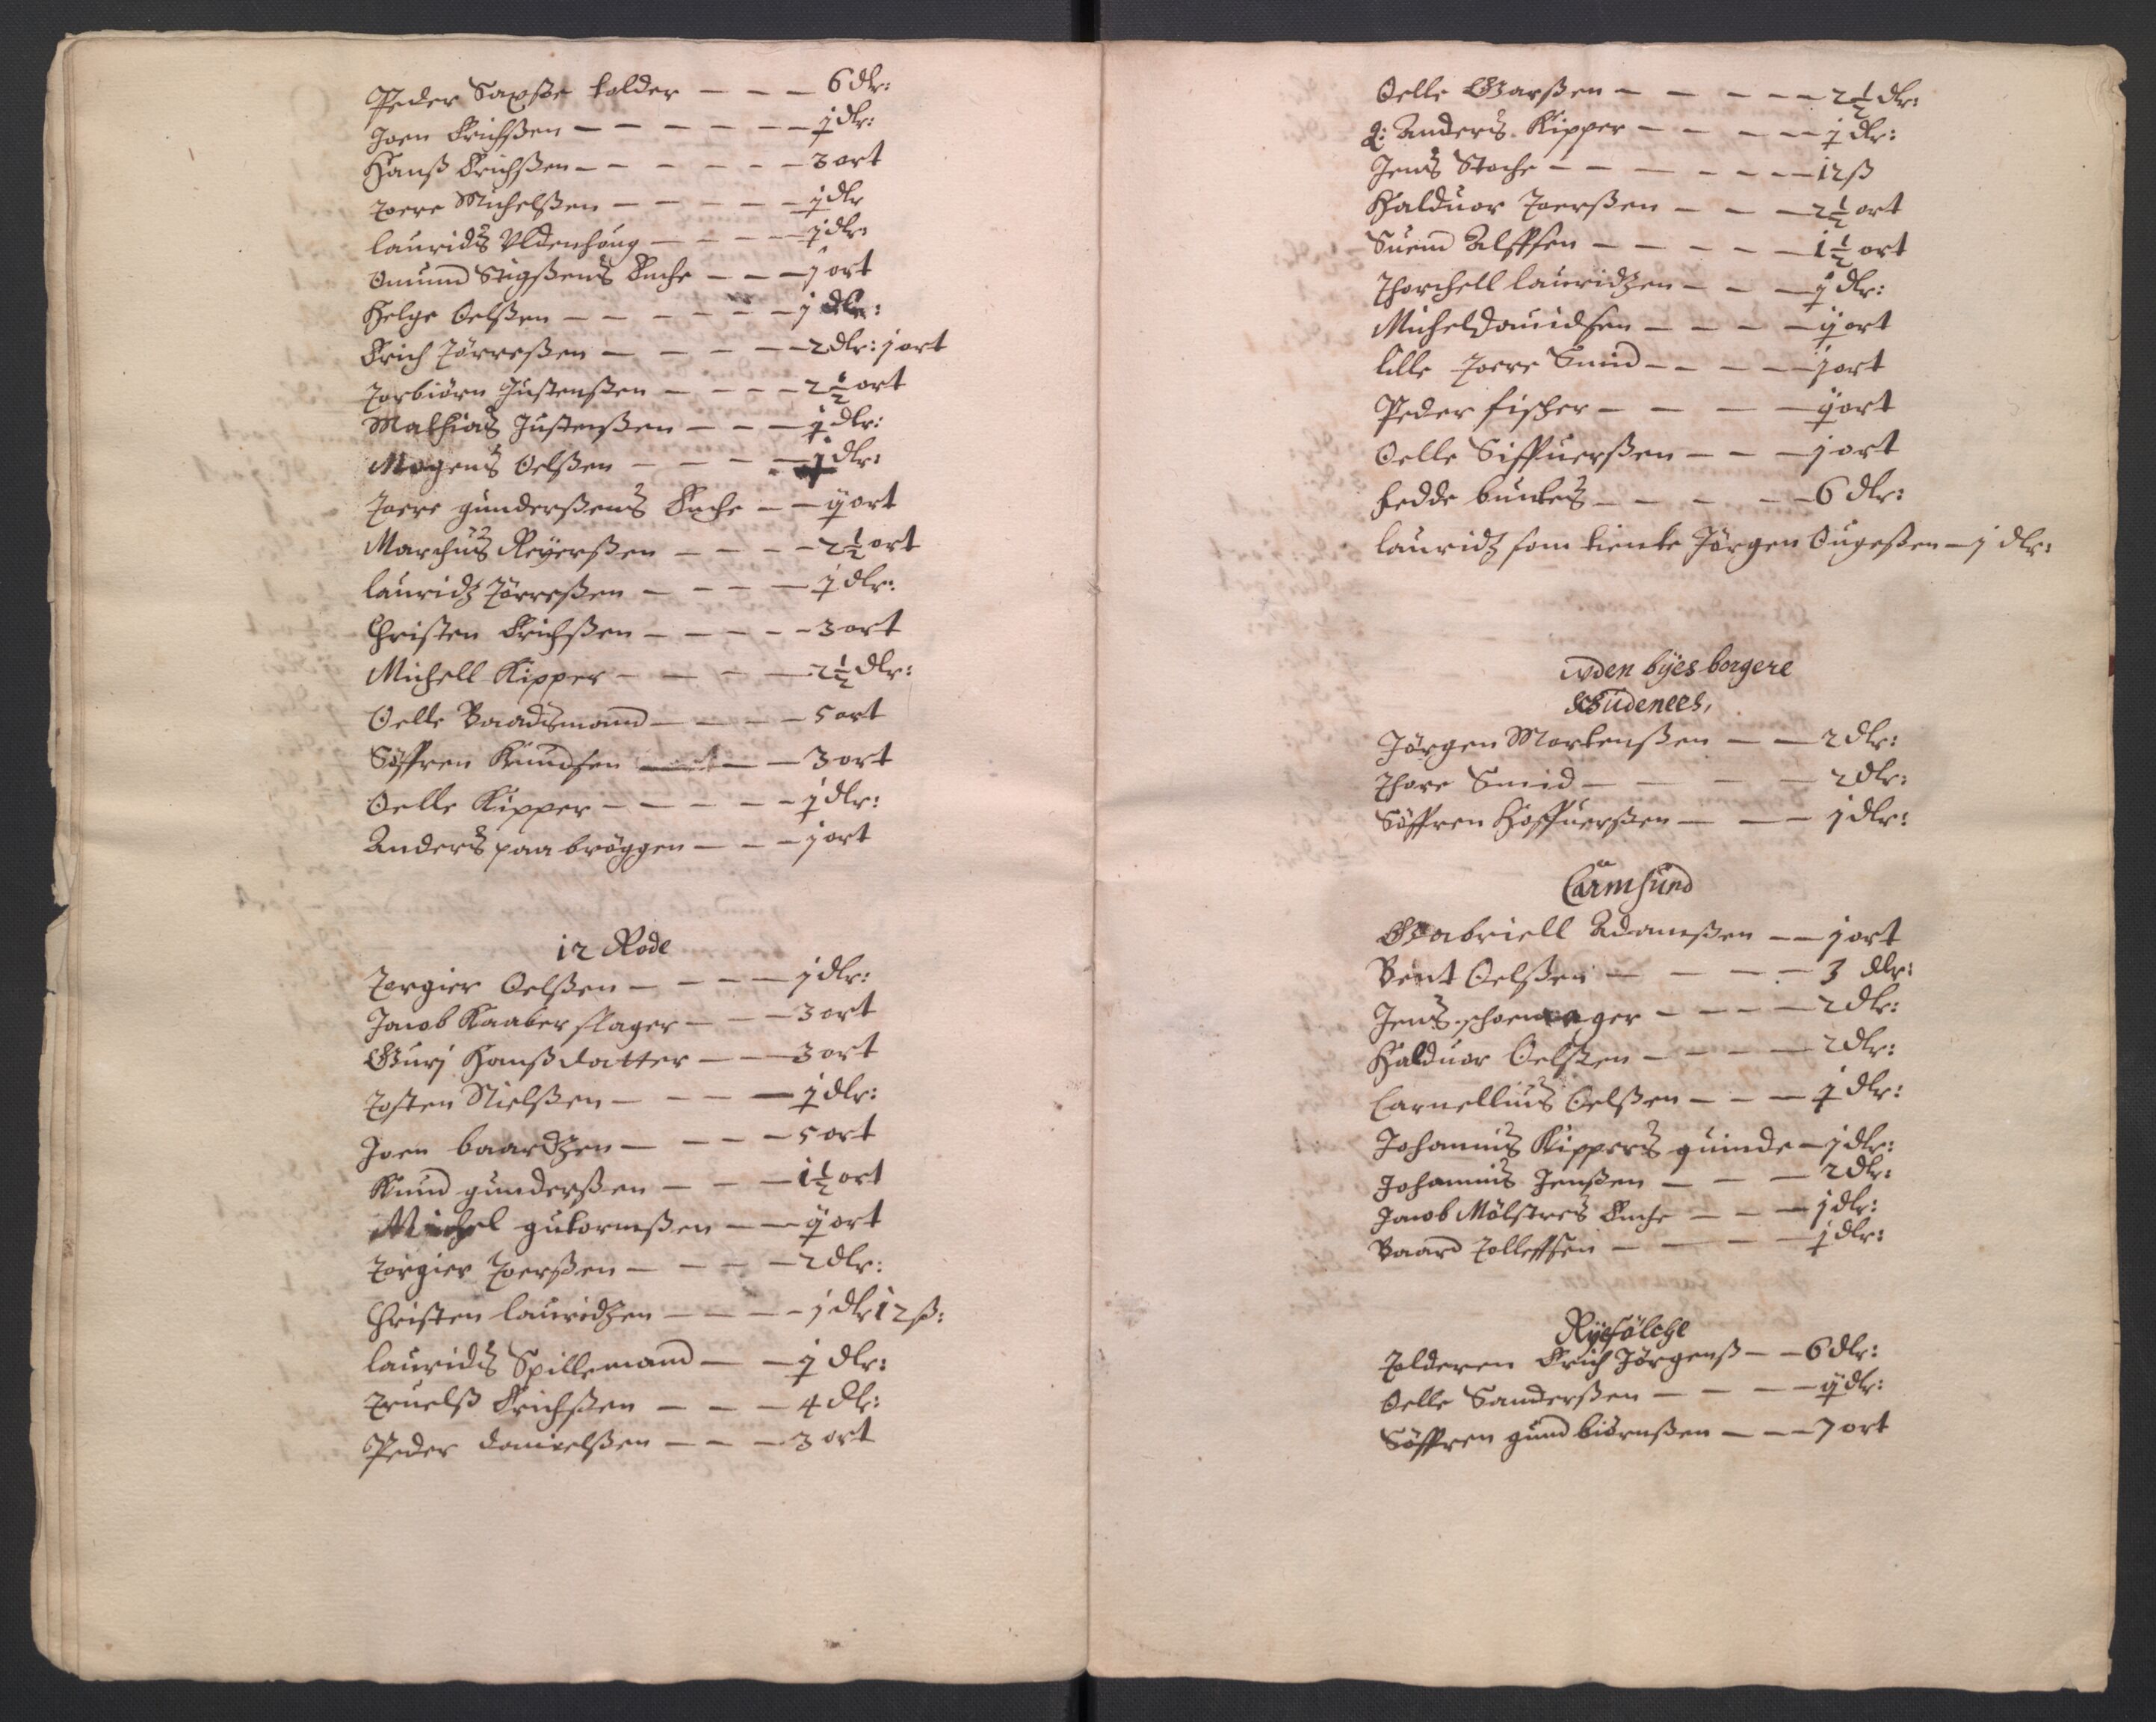 Peder Saxsøe tolder — — — 6 dlr:
Joen Erichßen — — — — — — ½ dlr:
Hanß Erichßen — — — — — — 3 ort
Toere Michelßen — — — — — ½ dlr
Lauridis Vldenhoug — — — — ½ dlr:
Omund Stigßens Enche — — — j ort
Helge Oelßen — — — — — — j dlr:
Erich Törresßen — — — — — 2 dlr: j ort
Torbiörn Justenßen — — — — 2½ ort
Mathias Justenßen — — — ½ dlr:
Mogens Oelßen — — — — j dlr:
Toere gunderßens Enche — — ½ ort
Marchus Reyerßen — — — — 2½ ort
Lauridz Törresßen — — — — ½ dlr:
Christen Erichßen — — — — — 3 ort
Michell Kipper — — — — — 2½ dlr:
Oelle Baadsmand — — — — 5 ort
Söffren Knudsen — — — 3 ort
Oelle Kipper — — — — — ½ dlr:
Anders paa bröggen — — — j ort
12 Rode
Torgier Oelßen — — — — j dlr:
Jacob Kaaber slager — — — 3 ort
Gurj Hanßdatter — — — 3 ort
Tosten Nielßen — — — — ½ dlr:
Joen baardtzen — — — — 5 ort
Knud gunderßen — — — 1½ ort
Michel gutormßen — — ½ ort
Torgier Toerßen — — — — 2 dlr:
Christen Lauridtzen — — — — j dlr 12 ß:
Lauridis Spillemand — — ½ dlr:
Truelß Erichßen — — — 4 dlr:
Peder danielßen — — — 3 ort
Oelle Garßen — — — — — 2½ dlr:
Anders Kipper — — — — ½ dlr:
Jens Stoche — — — — — — 12 ß
Halduor Toerßen — — — 2½ ort
Suend Alffsen — — — — — 1½ ort
Thorchell Lauridtzen — — — ½ dlr:
Michel Dauidsen — — — — ½ ort
Lille Toere Smid — — — — j ort
Peder fischer — — — — ½ ort
Oelle Siffuerßen — — — j ort
fedde buntes — — — — — 6 dlr:
Lauridz som tiente Jörgen Ougeßen — j dlr:
vden byes borgere
Gudenees,
Jörgen Mortenßen — — 2 dlr:
Thore Smid — — — — 2 dlr:
Söffren Hoffuerßen — — — j dlr:
Carmsund
Gabriell Adamßen — — j ort
Bent Oelßen — — — — 3 dlr:
Jens schoemager — — — — 2 dlr:
Halduor Oelßen — — — — 2 dlr:
Carnellius Oelßen — — — ½ dlr:
Johannis Kippers quinde — j dlr:
Johannis Jenßen — — — 2 dlr:
Jacob Mölstres Enche — — — j dlr:
Baard Tolleffsen — — — — ½ dlr:
Ryefölche
Tolderen Erich Jörgenß — — 6 dlr:
Oelle Sanderßen — — — — ½ dlr:
Söffren gundbiörnßen — — — 7 ort